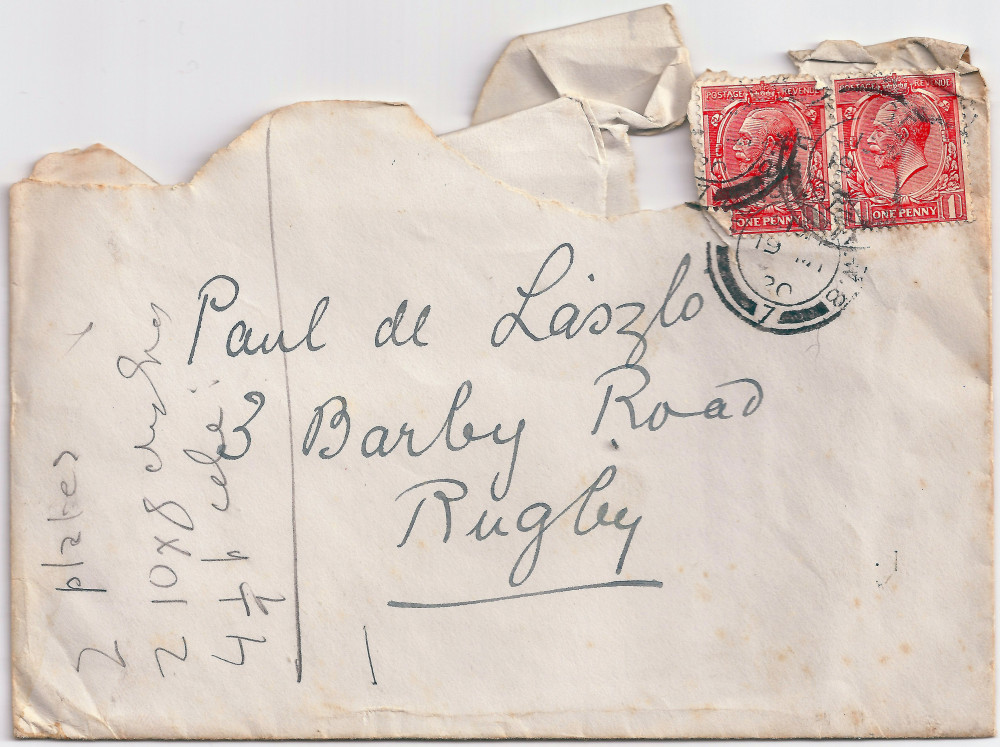 POSTAGE REVENUE
ONE PENNY
POSTAGE REVENUE
1 ONE PENNY 1
19 MY
20
7
Paul de László
3 Barby Road
Rugby
2 plates
2 10x8
4 ½ p